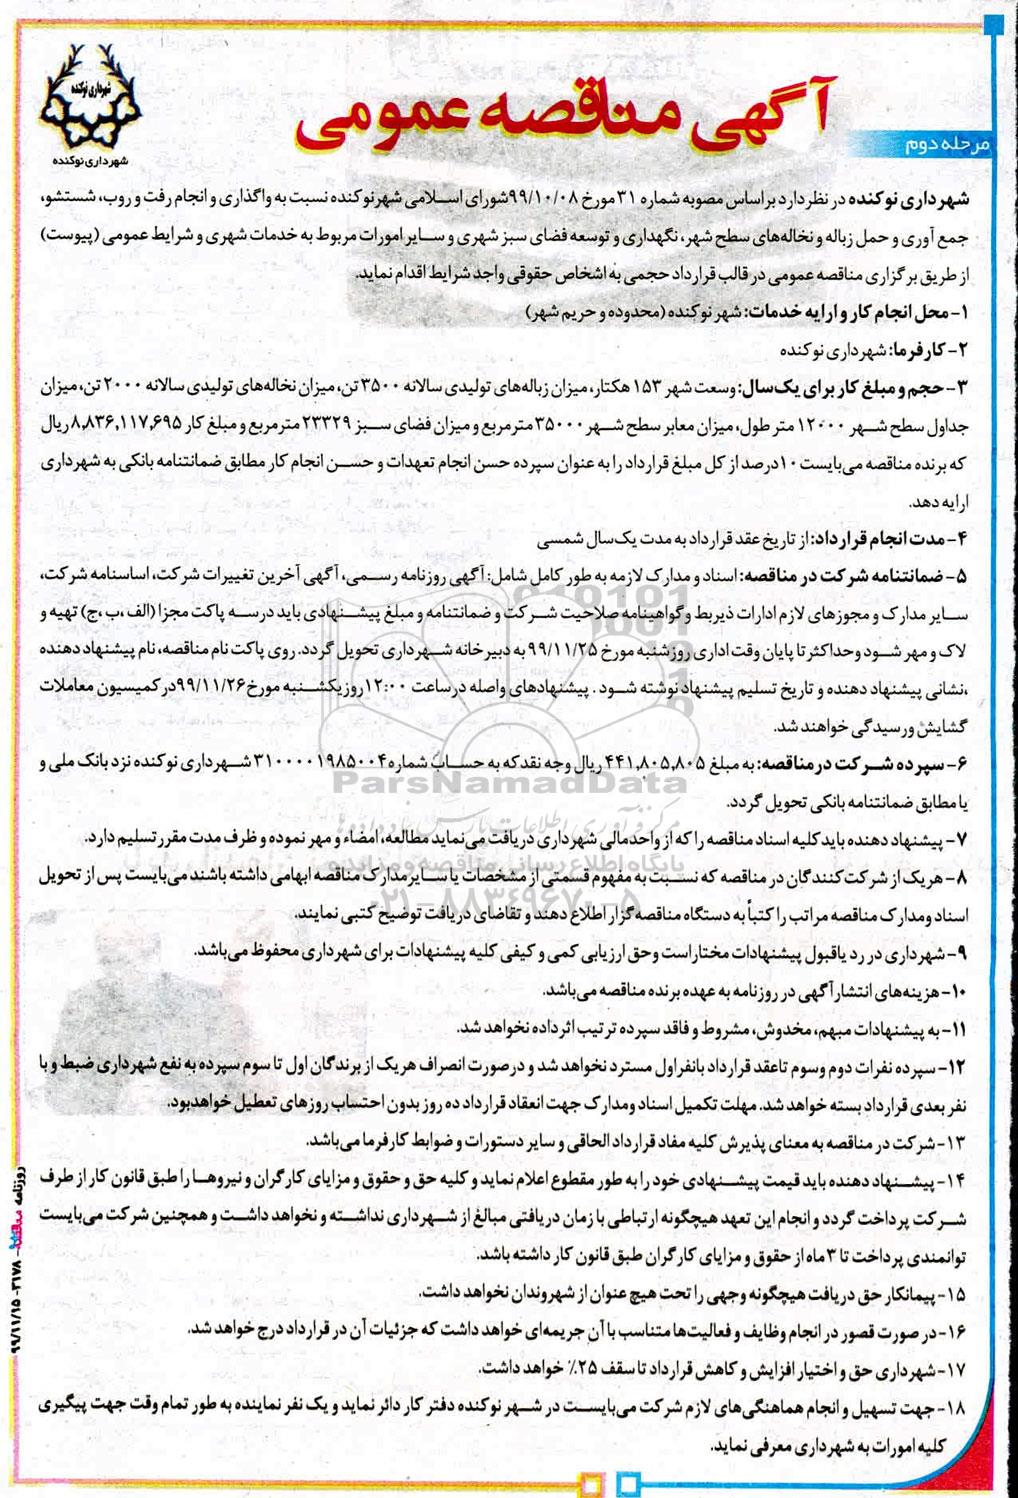 شهرداری نوکنده
شهرداری نوکنده
آگهی مناقصه عمومی
مرحله دوم
شهرداری نوکنده در نظر دارد براساس مصوبه شماره ۳۱ مورخ ۹۹/۱۰/۰۸ شورای اسلامی شهر نوکنده نسبت به واگذاری و انجام رفت و روب، شستشو،
جمع آوری و حمل زباله و نخاله‌های سطح شهر، نگهداری و توسعه فضای سبز شهری و سایر امورات مربوط به خدمات شهری و شرایط عمومی (پیوست)
از طریق برگزاری مناقصه عمومی در قالب قرارداد حجمی به اشخاص حقوقی واجد شرایط اقدام نماید.
۱- محل انجام کار و ارایه خدمات: شهر نوکنده (محدوده و حریم شهر)
۲- کارفرما: شهرداری نوکنده
۳- حجم و مبلغ کار برای یک‌سال: وسعت شهر ۱۵۳ هکتار، میزان زباله‌های تولیدی سالانه ۳۵۰۰ تن، میزان نخاله‌های تولیدی سالانه ۲۰۰۰ تن، میزان
جداول سطح شهر ۱۲۰۰۰ متر طول، میزان معابر سطح شهر ۳۵۰۰۰ مترمربع و میزان فضای سبز ۲۳۳۲۹ مترمربع و مبلغ کار ۸,۸۳۶,۱۱۷,۶۹۵ ریال
که برنده مناقصه می‌بایست ۱۰ درصد از کل مبلغ قرارداد را به عنوان سپرده حسن انجام تعهدات و حسن انجام کار مطابق ضمانتنامه بانکی به شهرداری
ارایه دهد.
۴- مدت انجام قرارداد: از تاریخ عقد قرارداد به مدت یک‌سال شمسی
۵- ضمانتنامه شرکت در مناقصه: اسناد و مدارک لازمه به طور کامل شامل: آگهی روزنامه رسمی، آگهی آخرین تغییرات شرکت، اساسنامه شرکت،
سایر مدارک و مجوزهای لازم ادارات ذیربط و گواهینامه صلاحیت شرکت و ضمانتنامه و مبلغ پیشنهادی باید در سه پاکت مجزا (الف ،ب ،ج) تهیه و
لاک و مهر شود و حداکثر تا پایان وقت اداری روز شنبه مورخ ۹۹/۱۱/۲۵ به دبیرخانه شهرداری تحویل گردد. روی پاکت نام مناقصه، نام پیشنهاد دهنده
،نشانی پیشنهاد دهنده و تاریخ تسلیم پیشنهاد نوشته شود . پیشنهادهای واصله در ساعت ۱۲:۰۰ روز یکشنبه مورخ ۹۹/۱۱/۲۶ در کمیسیون معاملات
گشایش و رسیدگی خواهند شد.
۶- سپرده شرکت در مناقصه: به مبلغ ۴۴۱,۸۰۵,۸۰۵ ریال وجه نقد که به حساب شماره ۳۱۰۰۰۰۱۹۸۵۰۰۴ شهرداری نوکنده نزد بانک ملی و
یا مطابق ضمانتنامه بانکی تحویل گردد.
ParsNamadData
۷- پیشنهاد دهنده باید کلیه اسناد مناقصه را که از واحد مالی شهرداری دریافت می‌نماید مطالعه، امضاء و مهر نموده و ظرف مدت مقرر تسلیم دارد.
پایگاه اطلاع رسانی مناقصه و مزایده
۸- هریک از شرکت‌کنندگان در مناقصه که نسبت به مفهوم قسمتی از مشخصات یا سایر مدارک مناقصه ابهامی داشته باشند می‌بایست پس از تحویل
۰۲۱-۸۸۳۴۹۶۷۰-۵
اسناد و مدارک مناقصه مراتب را کتباً به دستگاه مناقصه‌گزار اطلاع دهند و تقاضای دریافت توضیح کتبی نمایند.
۹- شهرداری در رد یا قبول پیشنهادات مختار است و حق ارزیابی کمی و کیفی کلیه پیشنهادات برای شهرداری محفوظ می‌باشد.
۱۰- هزینه‌های انتشار آگهی در روزنامه به عهده برنده مناقصه می‌باشد.
۱۱- به پیشنهادات مبهم، مخدوش، مشروط و فاقد سپرده ترتیب اثر داده نخواهد شد.
۱۲- سپرده نفرات دوم و سوم تا عقد قرارداد با نفر اول مسترد نخواهد شد و در صورت انصراف هریک از برندگان اول تا سوم سپرده به نفع شهرداری ضبط و با
نفر بعدی قرارداد بسته خواهد شد. مهلت تکمیل اسناد و مدارک جهت انعقاد قرارداد ده روز بدون احتساب روزهای تعطیل خواهد بود.
۱۳- شرکت در مناقصه به معنای پذیرش کلیه مفاد قرارداد الحاقی و سایر دستورات و ضوابط کارفرما می‌باشد.
۱۴- پیشنهاد دهنده باید قیمت پیشنهادی خود را به طور مقطوع اعلام نماید و کلیه حق و حقوق و مزایای کارگران و نیروها را طبق قانون کار از طرف
شرکت پرداخت گردد و انجام این تعهد هیچگونه ارتباطی با زمان دریافتی مبالغ از شهرداری نداشته و نخواهد داشت و همچنین شرکت می‌بایست
توانمندی پرداخت تا ۳ ماه از حقوق و مزایای کارگران طبق قانون کار داشته باشد.
۱۵- پیمانکار حق دریافت هیچگونه وجهی را تحت هیچ عنوان از شهروندان نخواهد داشت.
۱۶- در صورت قصور در انجام وظایف و فعالیت‌ها متناسب با آن جریمه‌ای خواهد داشت که جزئیات آن در قرارداد درج خواهد شد.
۱۷- شهرداری حق و اختیار افزایش و کاهش قرارداد تا سقف ۲۵٪ خواهد داشت.
۱۸- جهت تسهیل و انجام هماهنگی‌های لازم شرکت می‌بایست در شهر نوکنده دفتر کار دائر نماید و یک نفر نماینده به طور تمام وقت جهت پیگیری
کلیه امورات به شهرداری معرفی نماید.
روزنامه مناقصه - ۳۱۷۸ - ۹۹/۱۱/۱۵